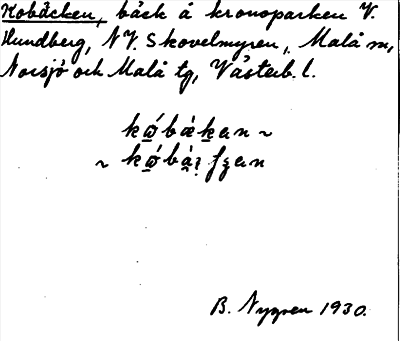 Kobäcken, bäck å kronoparken V.
Hundberg, NV. Skovelmyren, Malå sn,
Norsjö och Malå tg, Västerb. l.
B. Nygren 1930.